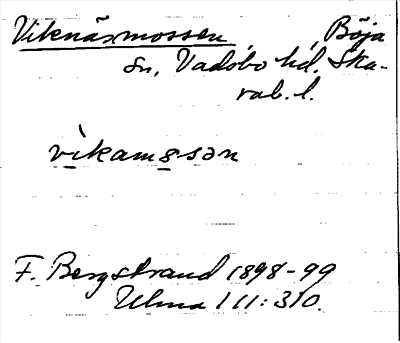 Viknäsmossen, , Böja
sn, Vadsbo hd. Ska-
rab. l.
vikamosən
F. Bergstrand 1898-99
Ulma 111:310.